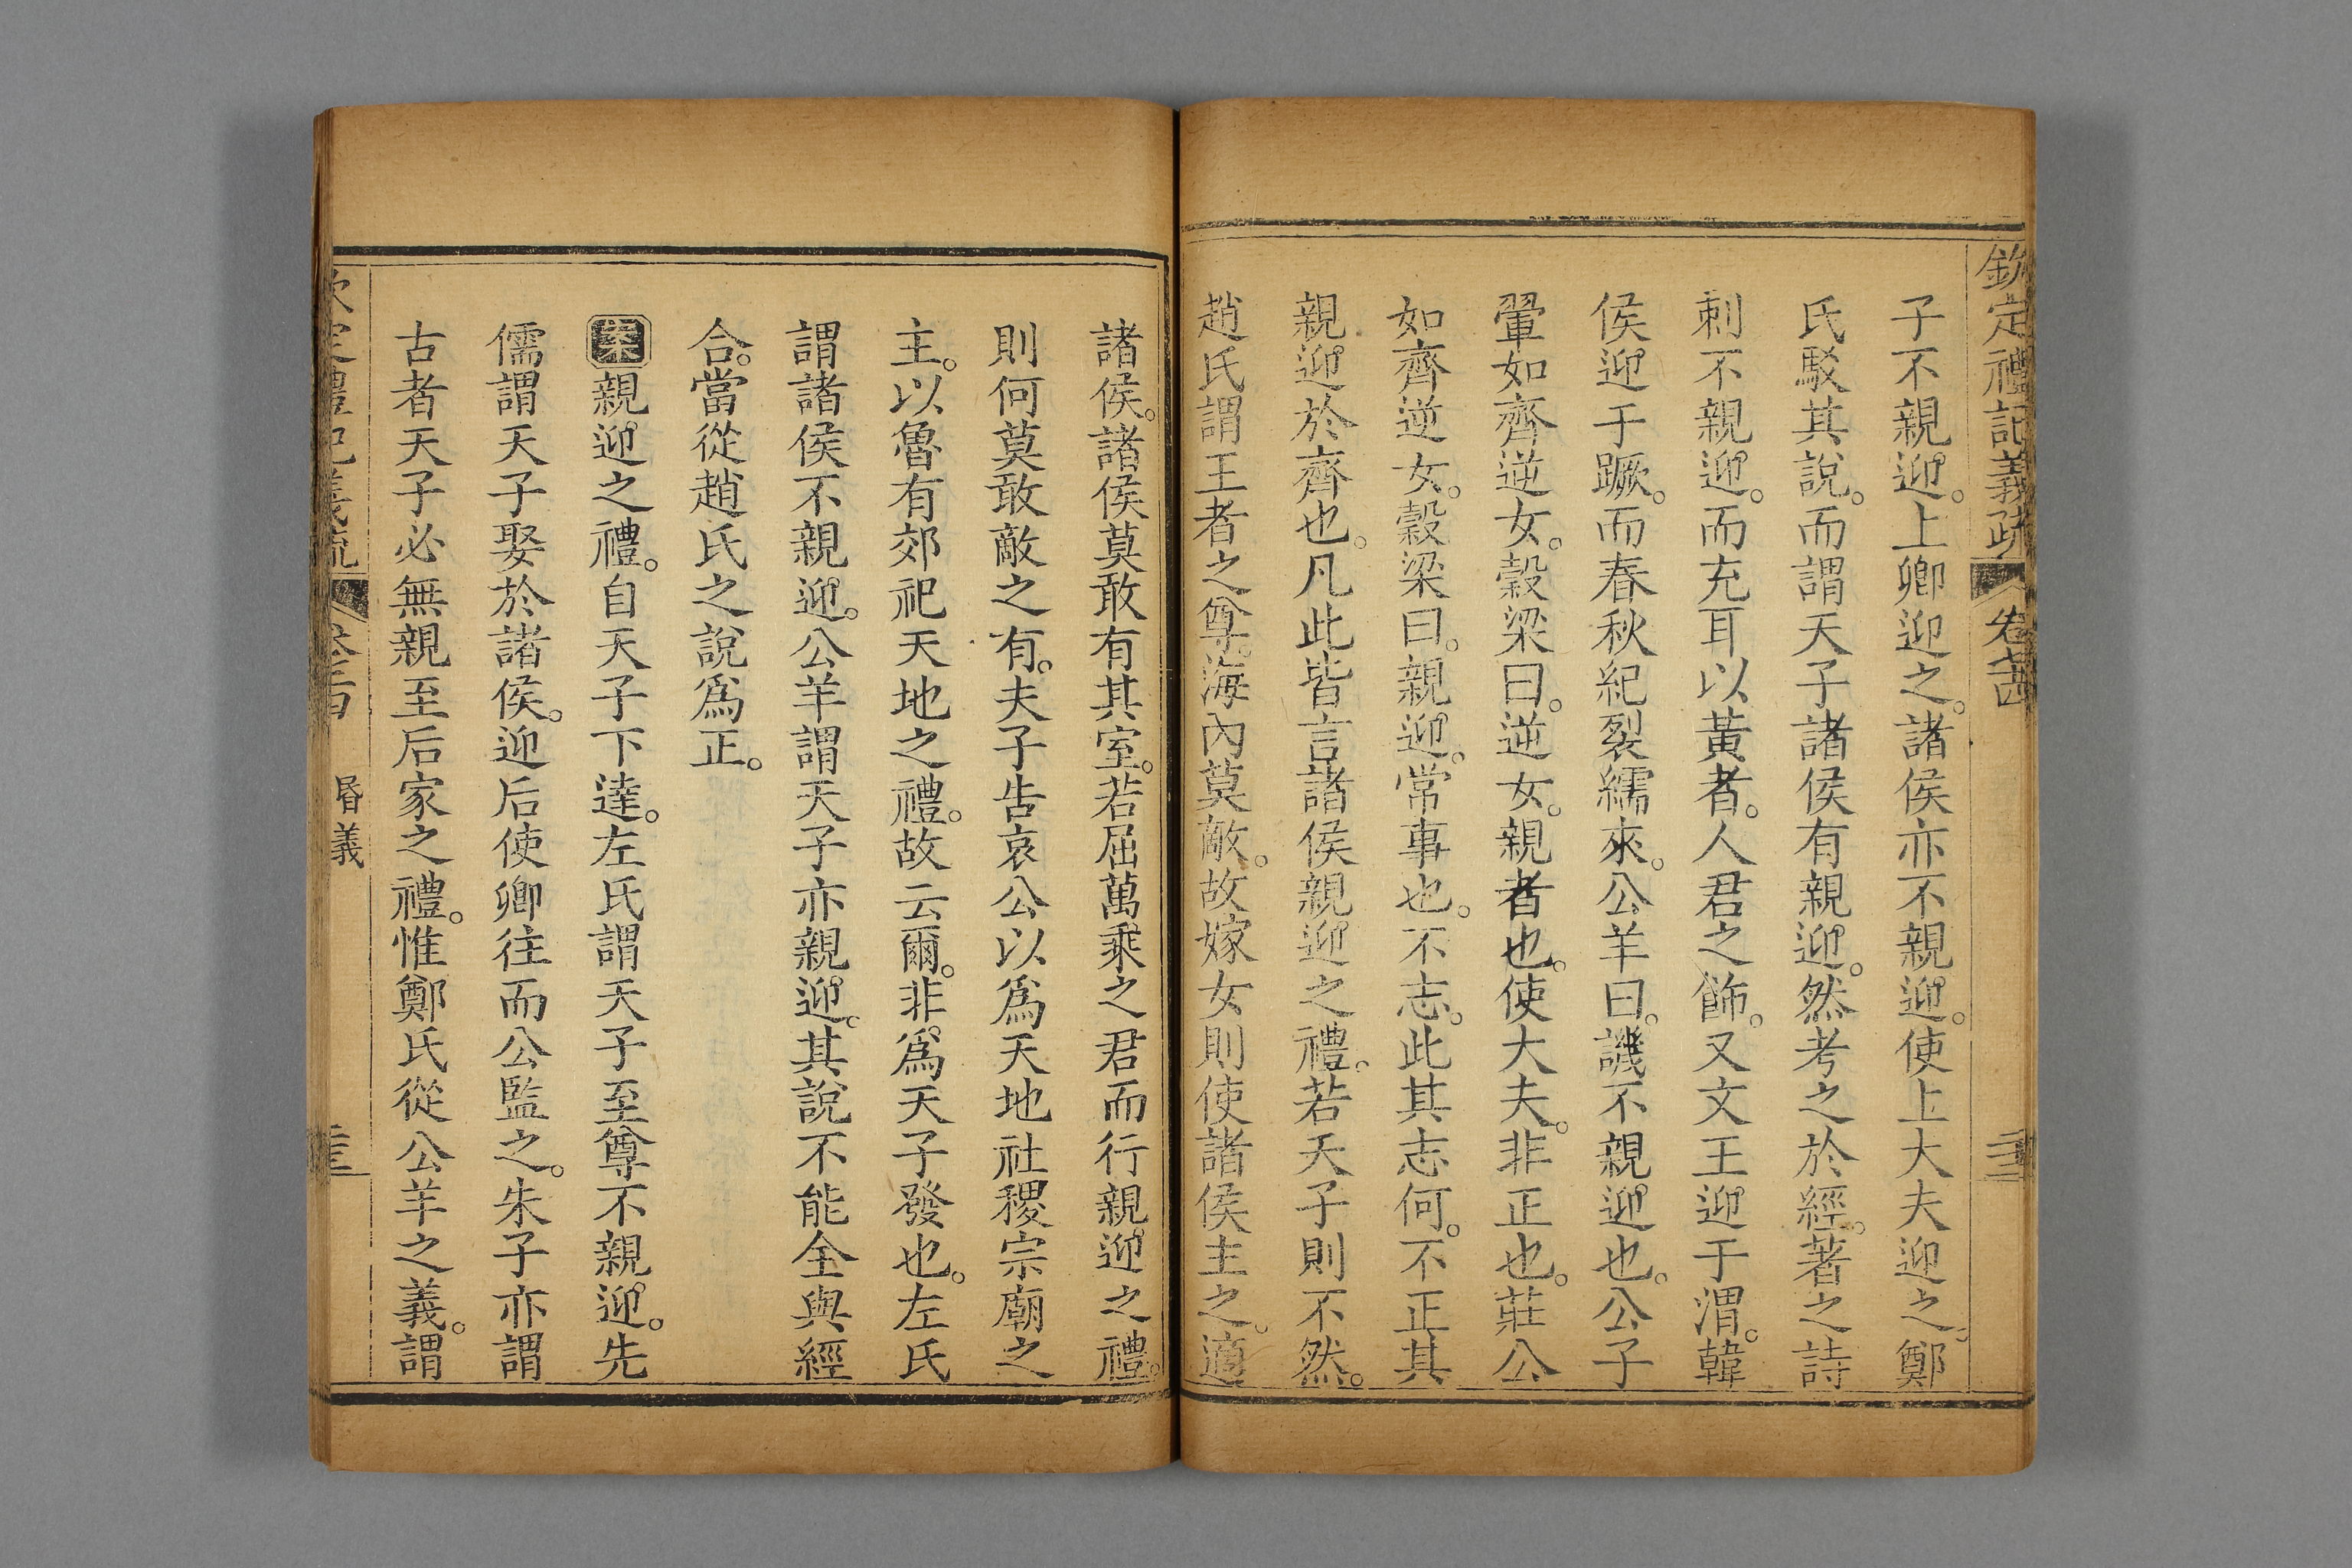 欽定禮記義疏 卷七十四
子不親迎。上卿迎之。諸侯亦不親迎。使上大夫迎之。鄭
氏駁其說。而謂天子諸侯有親迎。然考之於經。著之詩
刺不親迎。而充耳以黃者。人君之飾。又文王迎于渭。韓
侯迎于蹶。而春秋紀裂繻來。公羊曰。譏不親迎也。公子
翬如齊逆女。穀梁曰。逆女。親者也。使大夫。非正也。莊公
如齊逆女。穀梁曰。親迎。常事也。不志。此其志何。不正其
親迎於齊也。凡此皆言諸侯親迎之禮。若天子則不然。
趙氏謂王者之尊。海內莫敵。故嫁女則使諸侯主之。適
諸侯。諸侯莫敢有其室。若屈萬乘之君而行親迎之禮。
則何莫敢敵之有。夫子告哀公以為天地社稷宗廟之
主。以魯有郊祀天地之禮。故云爾。非為天子發也。左氏
謂諸侯不親迎。公羊謂天子亦親迎。其說不能全與經
合。當從趙氏之說為正。
案親迎之禮。自天子下達。左氏謂天子至尊不親迎。先
儒謂天子娶於諸侯。迎后使卿往而公監之。朱子亦謂
古者天子必無親至后家之禮。惟鄭氏從公羊之義。謂
昏義